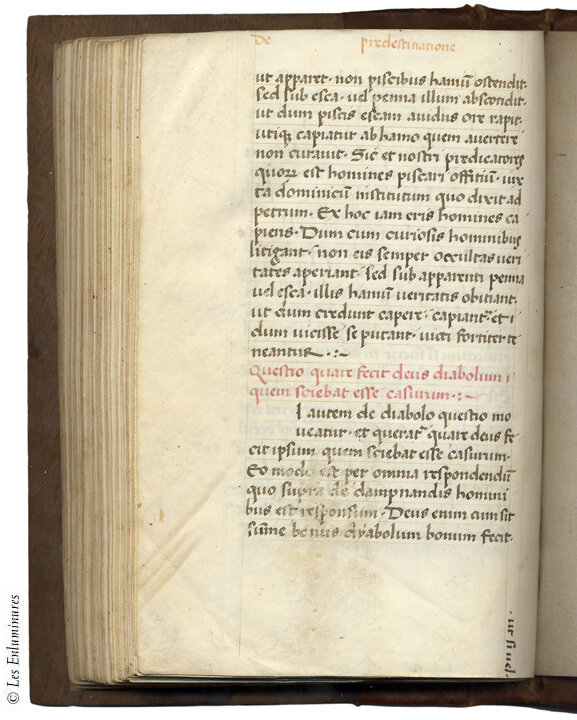 De predestinatione
ut apparet· non piscibus hamū ostendit·
sed sub esca· vel penna illum abscondit·
ut dum piscis escam auidus ore rapit·
utiqꝫ capiatur ab hamo quem auertere
non curauit· Sic et nostri predicatores
quoꝝ est homines piscari offitiū· iux
ta dominicū institutum quo dixit ad
petrum· Ex hoc iam eris homines ca
piens· Dum cum curiosis hominibus
litigant· non eis semper occultas ueri
tates aperiant· sed sub apparenti penna
uel esca· illis hamū ueritatis obitiant·
ut dum credunt capere· capiantᷣ et· i
dum uicisse se putant· uicti fortiter te
neantur ·:~
Questio quare fecit deus diabolum·
quem sciebat esse casurum ·:~
I autem de diabolo questio mo
ueatur· et queratᷣ quare deus fe
cit ipsum quem sciebat esse casurum·
Eo modo est per omnia respondendū
quo supra de dampnandis homini
bus est responsum· Deus enim cum sit
sūme bonus dyabolum bonum fecit·
© Les Enluminures